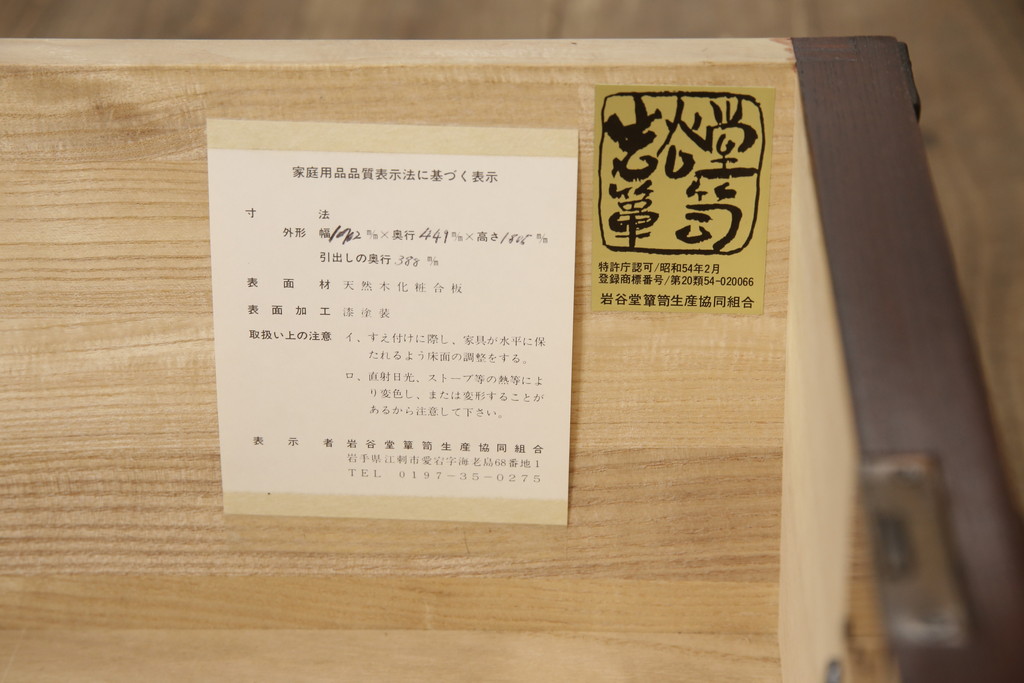 家庭用品品質表示法に基づく表示
寸法
外形 幅 ㎜×奥行449㎜×高さ ㎜
引出しの奥行388㎜
表面材 天然木化粧合板
表面加工 漆塗装
取扱い上の注意 イ、すえ付けに際し、家具が水平に保
たれるよう床面の調整をする。
ロ、直射日光、ストーブ等の熱等によ
り変色し、または変形することが
あるから注意して下さい。
表示者 岩谷堂簞笥生産協同組合
岩手県江刺市愛宕字海老島68番地1
TEL 0197-35-0275
岩谷堂
簞笥
特許庁認可/昭和54年2月
登録商標番号/第20類54-020066
岩谷堂簞笥生産協同組合